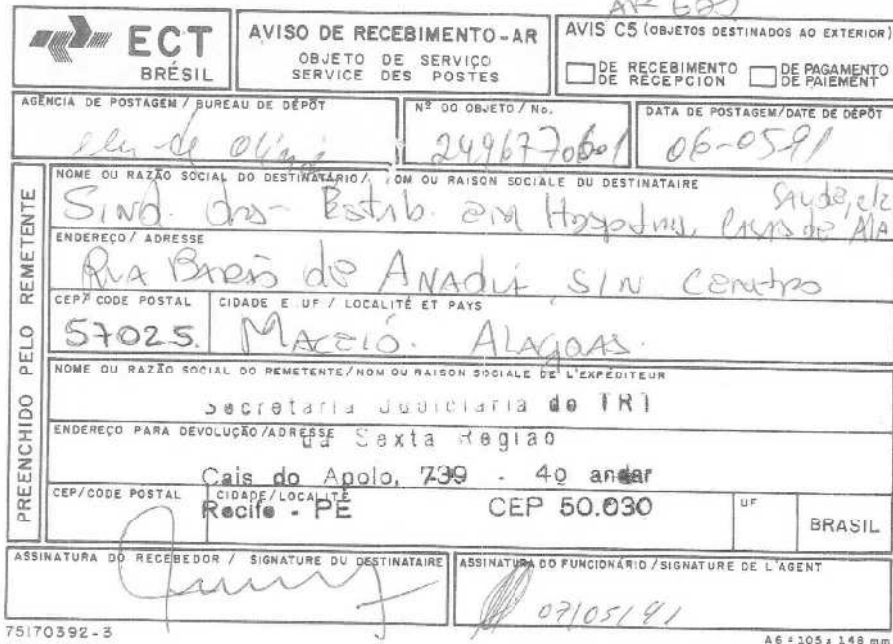 AR 625
ECT
BRÉSIL
AVISO DE RECEBIMENTO-AR
OBJETO DE SERVIÇO
SERVICE DES POSTES
AVIS C5 (OBJETOS DESTINADOS AO EXTERIOR)
DE RECEBIMENTO
DE RÉCEPCION
DE PAGAMENTO
DE PAIEMENT
AGÊNCIA DE POSTAGEM / BUREAU DE DÉPÔT
de
Nº DO OBJETO / No.
DATA DE POSTAGEM/DATE DE DÉPÔT
06-0591
PREENCHIDO PELO REMETENTE
NOME OU RAZÃO SOCIAL DO DESTINATÁRIO / NOM OU RAISON SOCIALE DU DESTINATAIRE
Sind. dos Estab. em Saude, etc
ENDEREÇO / ADRESSE
Rua Barão de ANADIA S/N Centro
CEP / CODE POSTAL
57025.
CIDADE E UF / LOCALITÉ ET PAYS
MACEIÓ. ALAGOAS.
NOME OU RAZÃO SOCIAL DO REMETENTE/NOM OU RAISON SOCIALE DE L'EXPÉDITEUR
Secretaria Judiciaria do TRT
ENDEREÇO PARA DEVOLUÇÃO/ADRESSE
da Sexta Regiao
Cais do Apolo, 739 - 4º andar
CEP/CODE POSTAL
CIDADE/LOCALITÉ
Recife - PE CEP 50.030
UF
BRASIL
ASSINATURA DO RECEBEDOR / SIGNATURE DU DESTINATAIRE
ASSINATURA DO FUNCIONÁRIO / SIGNATURE DE L'AGENT
07/05/91
75170392-3
A6 = 105 x 148 mm